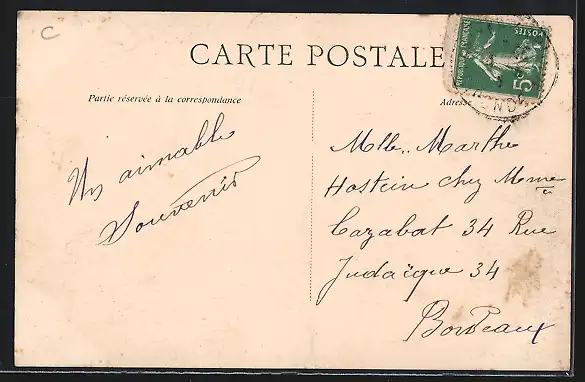 C
CARTE POSTALE
POSTES
5c
Partie réservée à la correspondance
Adresse
Un aimable
Souvenir
Mlle. Marthe
Hostein chez Mme
Cazabat 34 Rue
Judaïque 34
Bordeaux